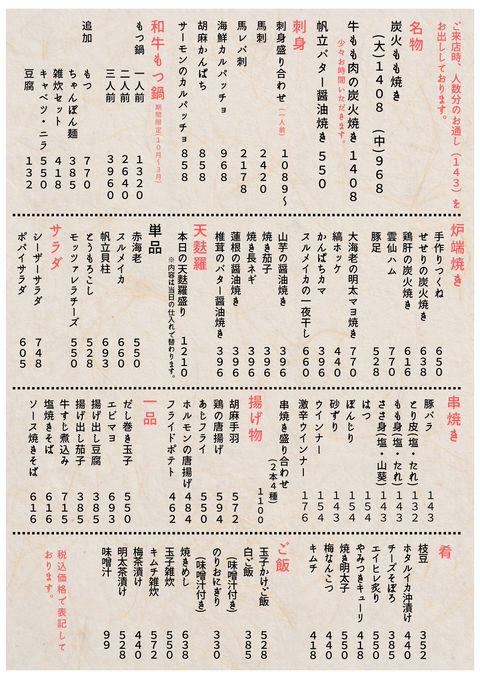 ご来店時、人数分のお通し（143）を
お出ししております。
名物
炭火もも焼き
（大）1408　（中）968
牛もも肉の炭火焼き 1408
少々お時間いただきます。
帆立バター醤油焼き 550
刺身
刺身盛り合わせ（一人前） 1089〜
馬刺 2420
馬レバ刺 2178
海鮮カルパッチョ 968
胡麻かんぱち 858
サーモンのカルパッチョ 858
和牛もつ鍋 期間限定（10月〜3月）
もつ鍋 一人前 1320
二人前 2640
三人前 3960
追加 もつ 770
ちゃんぽん麺 385
雑炊セット 418
キャベツ・ニラ 550
豆腐 132
炉端焼き
手作りつくね 650
せせりの炭火焼き 638
鶏肝の炭火焼き 616
雲仙ハム 770
豚足 528
大海老の明太マヨ焼き 770
縞ホッケ 440
かんぱちカマ 696
スルメイカの一夜干し 660
山芋の醤油焼き 396
焼き茄子 396
焼き長ネギ 396
蓮根の醤油焼き 396
椎茸のバター醤油焼き 396
天麩羅
本日の天麩羅盛り 1210
※内容は当日の仕入れで替わります。
単品
赤海老 550
スルメイカ 660
帆立貝柱 693
とうもろこし 528
モッツァレラチーズ 550
サラダ
シーザーサラダ 748
ポパイサラダ 605
串焼き
豚バラ 143
とり皮（塩・たれ） 132
もも身（塩・たれ） 143
ささ身（塩・山葵） 143
はつ 154
ぼんじり 154
砂ずり 143
ウインナー 154
激辛ウインナー 176
串焼き盛り合わせ
（2本4種） 1100
揚げ物
胡麻手羽 572
鶏の唐揚げ 594
あじフライ 550
ホルモンの唐揚げ 484
フライドポテト 462
一品
だし巻き玉子 550
エビマヨ 693
揚げ出し豆腐 385
揚げ出し茄子 385
牛すじ煮込み 715
塩焼きそば 616
ソース焼きそば 616
肴
枝豆 352
ホタルイカ沖漬け 440
チーズそぼろ 385
エイヒレ炙り 550
やみつきキューリ 418
焼き明太子 550
梅なんこつ 440
キムチ 418
ご飯
玉子かけご飯 528
（味噌汁付き）
白ご飯 385
のりおにぎり 330
（味噌汁付き）
焼きめし 638
玉子雑炊 550
キムチ雑炊 572
梅茶漬け 440
明太茶漬け 528
味噌汁 99
税込価格で表記して
おります。